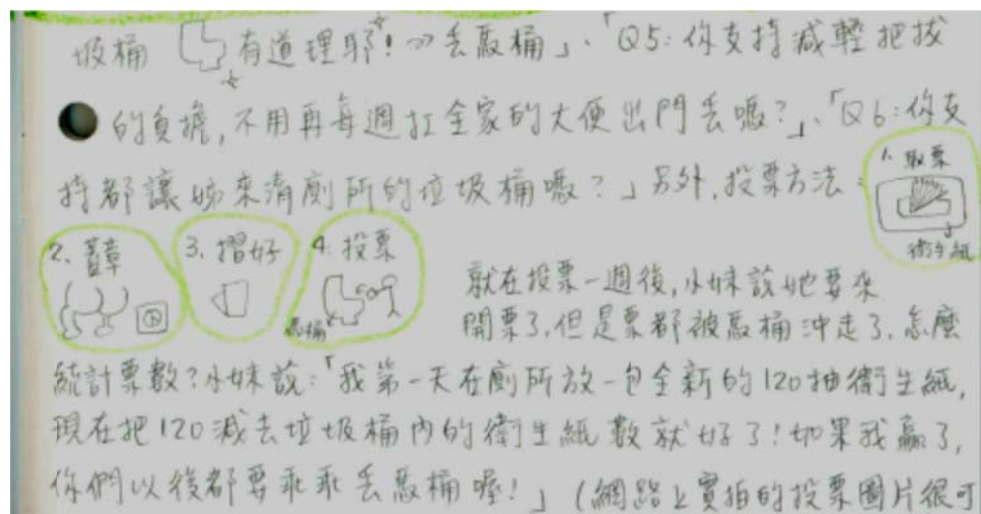 圾桶 有道理耶!⇒丟馬桶」、「Q5:你支持減輕把拔
的負擔,不用再每週扛全家的大便出門丟嗎?」、「Q6:你支
持都讓姊來清廁所的垃圾桶嗎?」另外,投票方法:
1. 取票
衛生紙
2. 蓋章
3. 摺好
4. 投票
馬桶
就在投票一週後,小妹說她要來
開票了,但是票都被馬桶沖走了,怎麼
統計票數?小妹說:「我第一天在廁所放一包全新的120抽衛生紙,
現在把120減去垃圾桶內的衛生紙數就好了!如果我贏了,
你們以後都要乖乖丟馬桶喔!」(網路上實拍的投票圖片很可